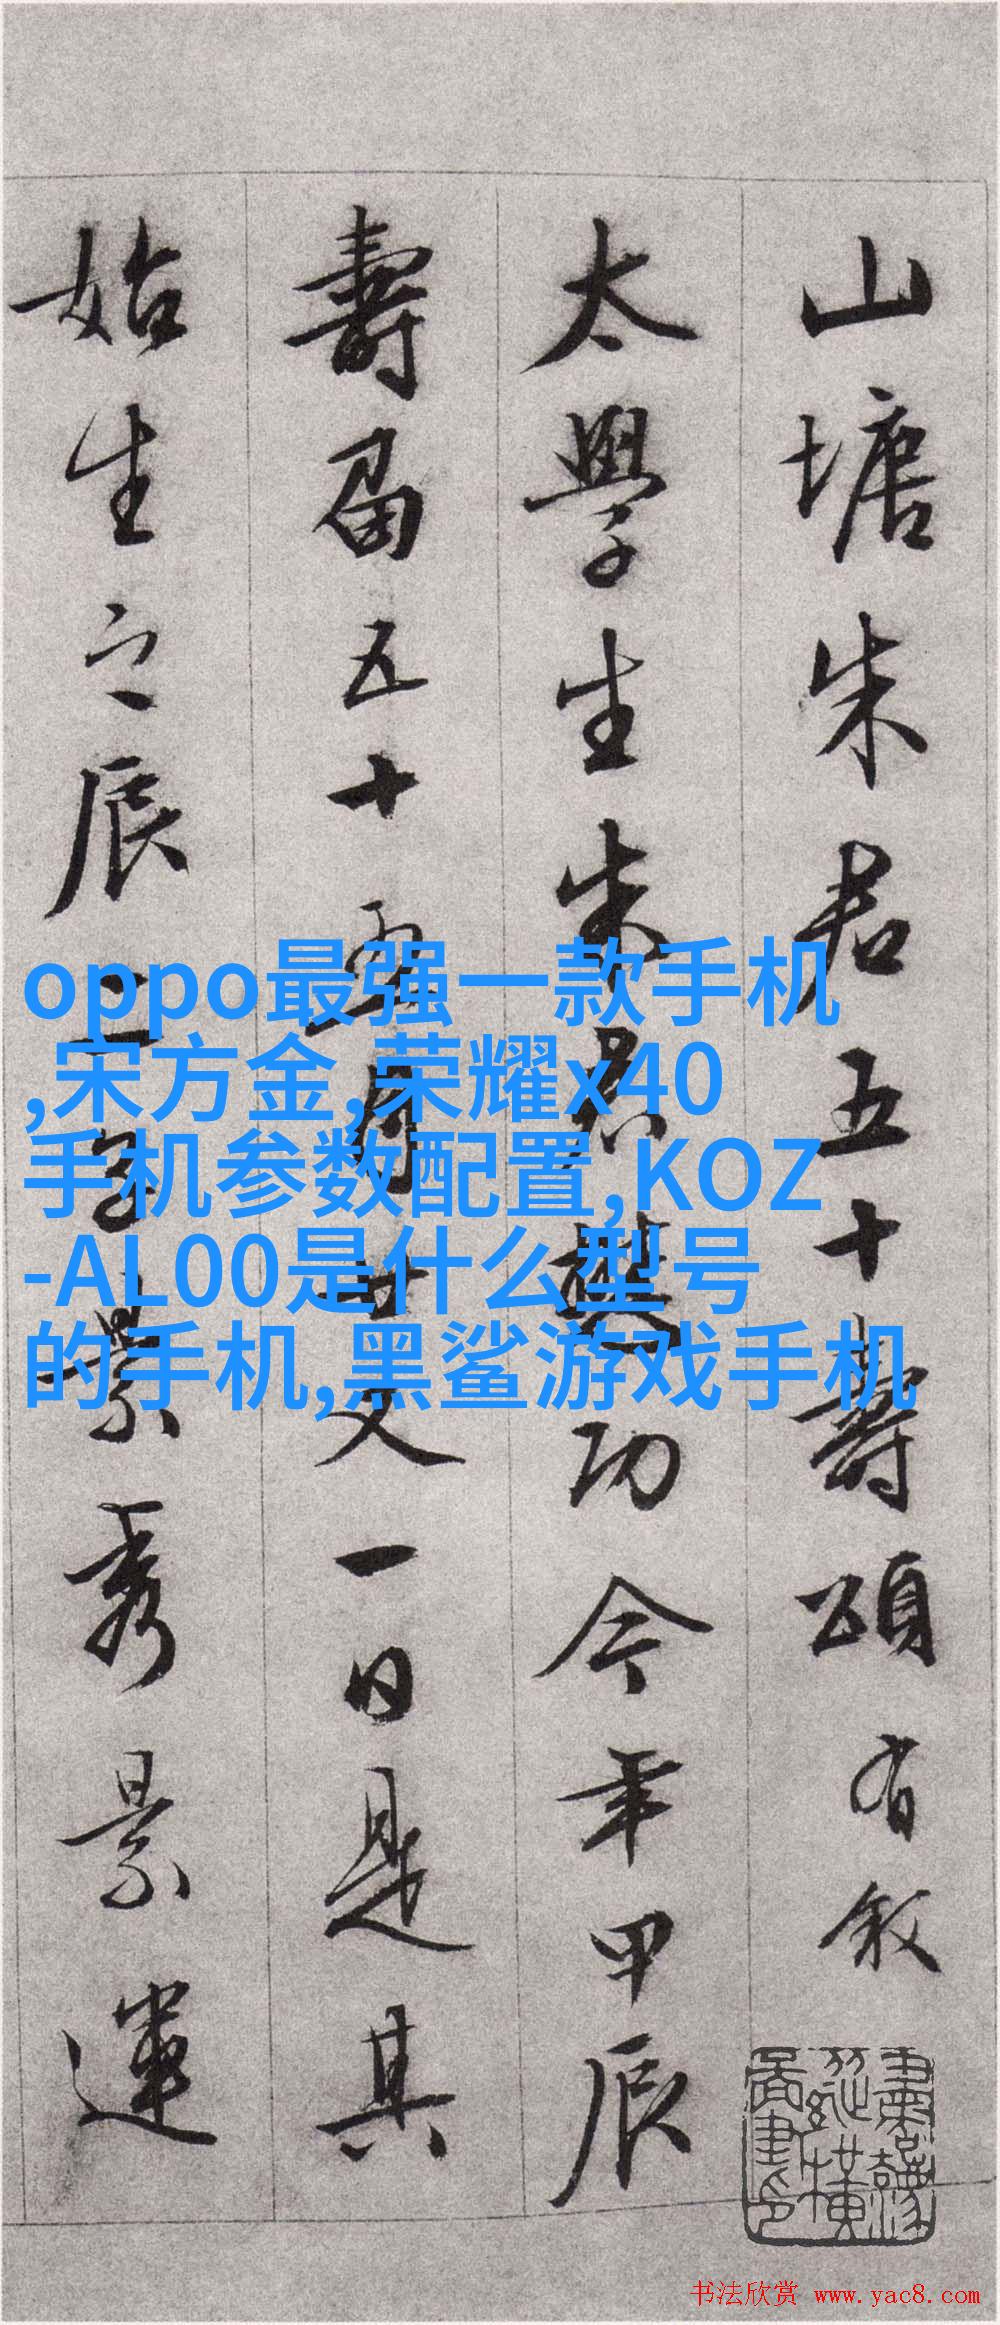 山塘朱君五十壽頌有叙
太學生朱君懋功今年甲辰
壽五十月廿又一日是其
始生之辰景景運
oppo最强一款手机
,宋方金,荣耀x40
手机参数配置,KOZ
-AL00是什么型号
的手机,黑鲨游戏手机
书法欣赏 www.yac8.com